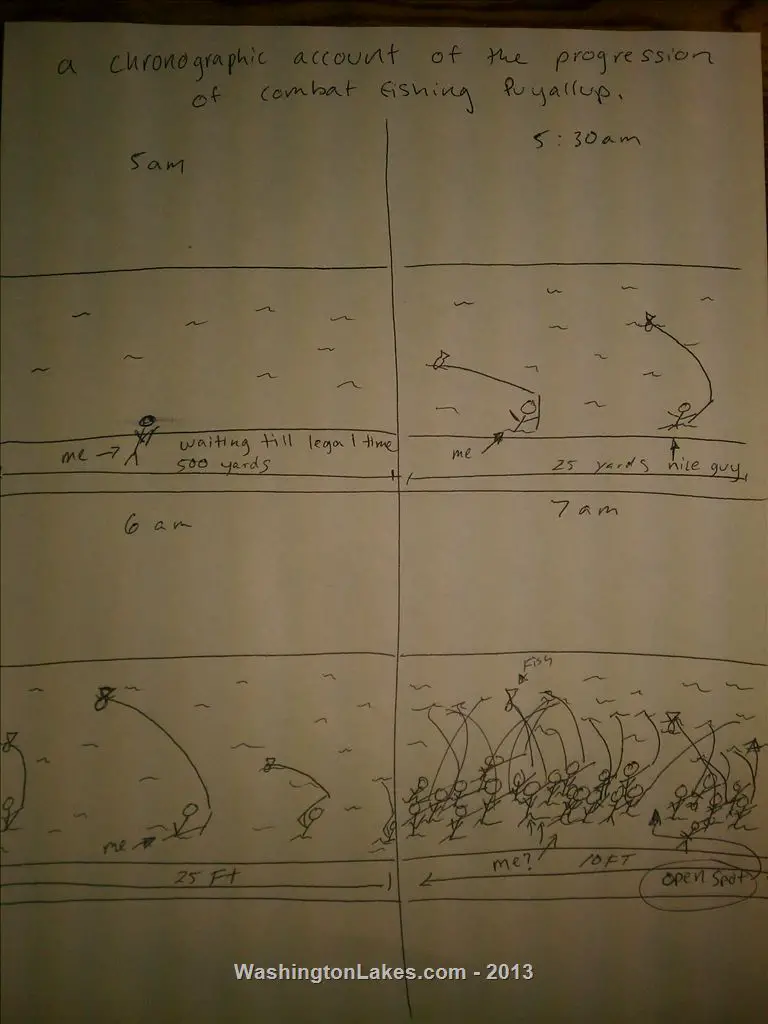 a chronographic account of the progression
of combat fishing Puyallup.
5am
me
waiting till legal time
500 yards
5:30am
me
25 yards
nile guy
6 am
me
25 Ft
7am
Fish
me?
10FT
open spot
WashingtonLakes.com - 2013